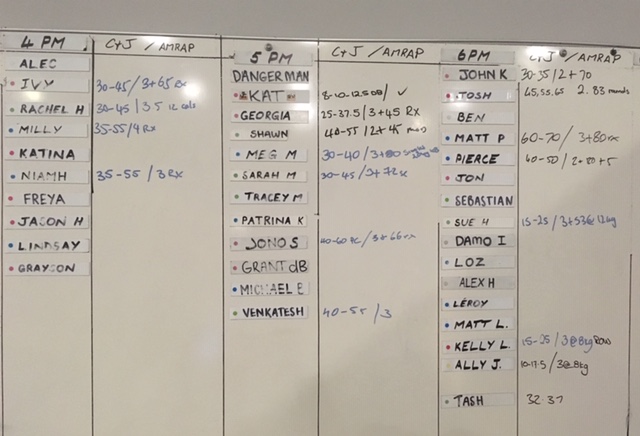 4 PM C+J / AMRAP
ALEC
IVY 30-45 / 3+65 Rx
RACHEL H 30-45 / 3.5 12 cals
MILLY 35-55 / 4 Rx
KATINA
NIAMH 35-55 / 3 Rx
FREYA
JASON H
LINDSAY
GRAYSON
5 PM C+J / AMRAP
DANGERMAN
KAT 8-10-12.5 / ✓
GEORGIA 25-37.5 / 3+45 Rx
SHAWN 40-55 / 2+45
MEG M 30-40 / 3+80
SARAH M 30-45 /
TRACEY M
PATRINA K
JONO S 40-60 / 3+66 rx
GRANT dB
MICHAEL B
VENKATESH 40-55 / 3
6PM C+J / AMRAP
JOHN K 30-35 / 2+70
TOSH 45,55,65 2.83 rounds
BEN
MATT P 60-70 / 3+80 rx
PIERCE 40-50 /
JON
SEBASTIAN
SUE H 15-25 / 3+53@12kg
DAMO I
LOZ
ALEX H
LEROY
MATT L.
KELLY L. 15-25 / 3@8kg Row
ALLY J. 10-17.5 / 3@8kg
TASH 32.37